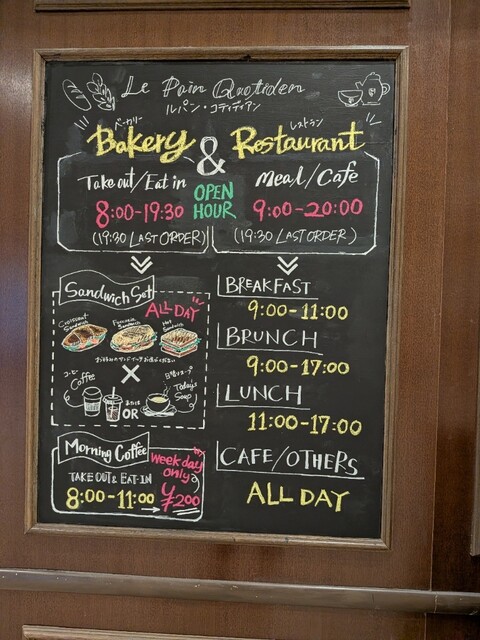 Le Pain Quotidien
ルパン・コティディアン
ベーカリー
Bakery
&
レストラン
Restaurant
Take out/Eat in
8:00-19:30
(19:30 LAST ORDER)
OPEN
HOUR
Meal/Cafe
9:00-20:00
(19:30 LAST ORDER)
Sandwich Set
ALL DAY
Croissant
Sandwich
Focaccia
Sandwich
Hot
Sandwich
×
コーヒー
Coffee
または
OR
日替りスープ
Today's
Soup
Morning Coffee
week day
only
TAKE OUT & EAT-IN
8:00-11:00
→¥200
BREAKFAST
9:00-11:00
BRUNCH
9:00-17:00
LUNCH
11:00-17:00
CAFE/OTHERS
ALL DAY